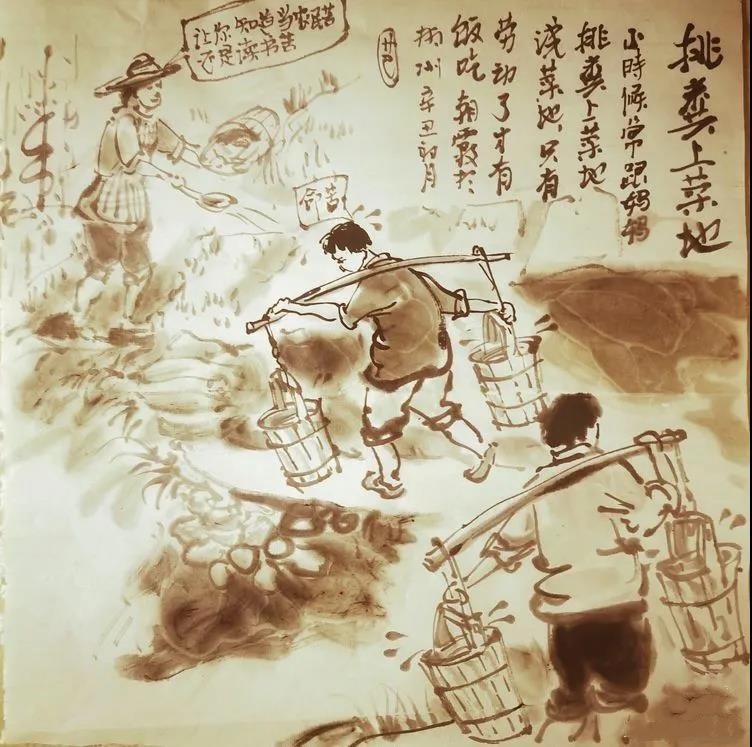 挑粪上菜地
小時候常跟妈妈
挑粪上菜地
浇菜地只有
劳动了才有
饭吃 朝霞於
柳州辛丑 月
让你知道当农民苦
还是读书苦
都苦